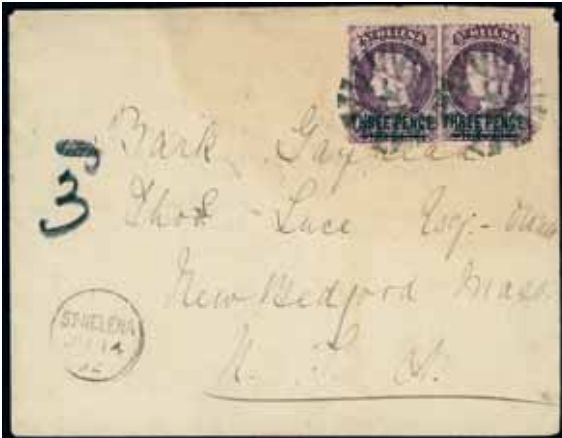 ST HELENA ST HELENA
THREE PENCE THREE PENCE
Bark Gayhead
Thos Luce Esq.
3
New Bedford Mass
ST HELENA
U. S. A.